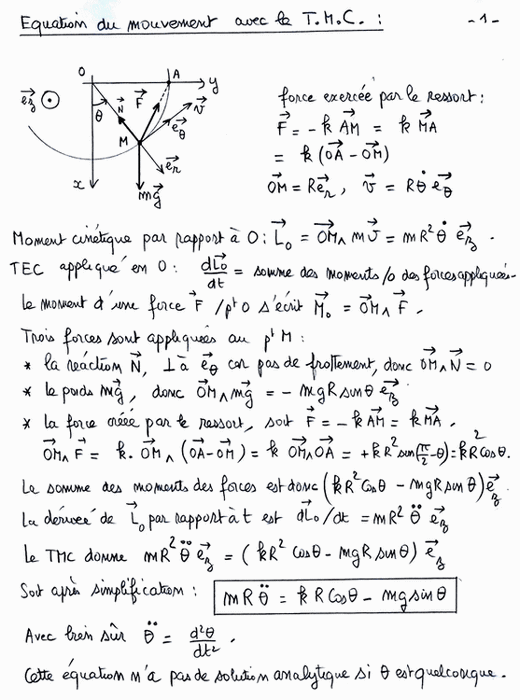 Equation du mouvement avec le T.M.C. : -1-
O A y
e⃗z ⊙ θ N⃗ F⃗ v⃗
M e⃗θ
e⃗r
x mg⃗
force exercée par le ressort :
F⃗ = -k AM⃗ = k MA⃗
= k (OA⃗ - OM⃗)
OM⃗ = Re⃗r , v⃗ = Rθ̇ e⃗θ
Moment cinétique par rapport à O : L⃗o = OM⃗ ∧ mv⃗ = mR²θ̇ e⃗z .
TEC appliqué en O : dL⃗o/dt = somme des moments /o des forces appliquées.
Le moment d'une force F⃗ / pt O s'écrit M⃗o = OM⃗ ∧ F⃗ .
Trois forces sont appliquées au pt M :
* la réaction N⃗, ⊥ à e⃗θ car pas de frottement, donc OM⃗ ∧ N⃗ = 0
* le poids mg⃗, donc OM⃗ ∧ mg⃗ = - mgR sin θ e⃗z
* la force créée par le ressort, soit F⃗ = -k AM⃗ = k MA⃗ .
OM⃗ ∧ F⃗ = k. OM⃗ ∧ (OA⃗ - OM⃗) = k OM⃗ ∧ OA⃗ = + kR² sin(π/2 - θ) = kR² cos θ.
La somme des moments des forces est donc (kR² cos θ - mgR sin θ) e⃗z .
La dérivée de L⃗o par rapport à t est dL⃗o/dt = mR² θ̈ e⃗z
Le TMC donne mR² θ̈ e⃗z = (kR² cos θ - mgR sin θ) e⃗z
Soit après simplification : mRθ̈ = kR cos θ - mg sin θ
Avec bien sûr θ̈ = d²θ/dt² .
Cette équation n'a pas de solution analytique si θ est quelconque .